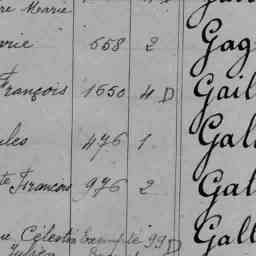 re Marie
arie 658 2 Gag
François 1650 4 D Gail
ules 476 1 Gal
te Francois 976 2 Gal
ue Célestin Exempté 99 D Gall